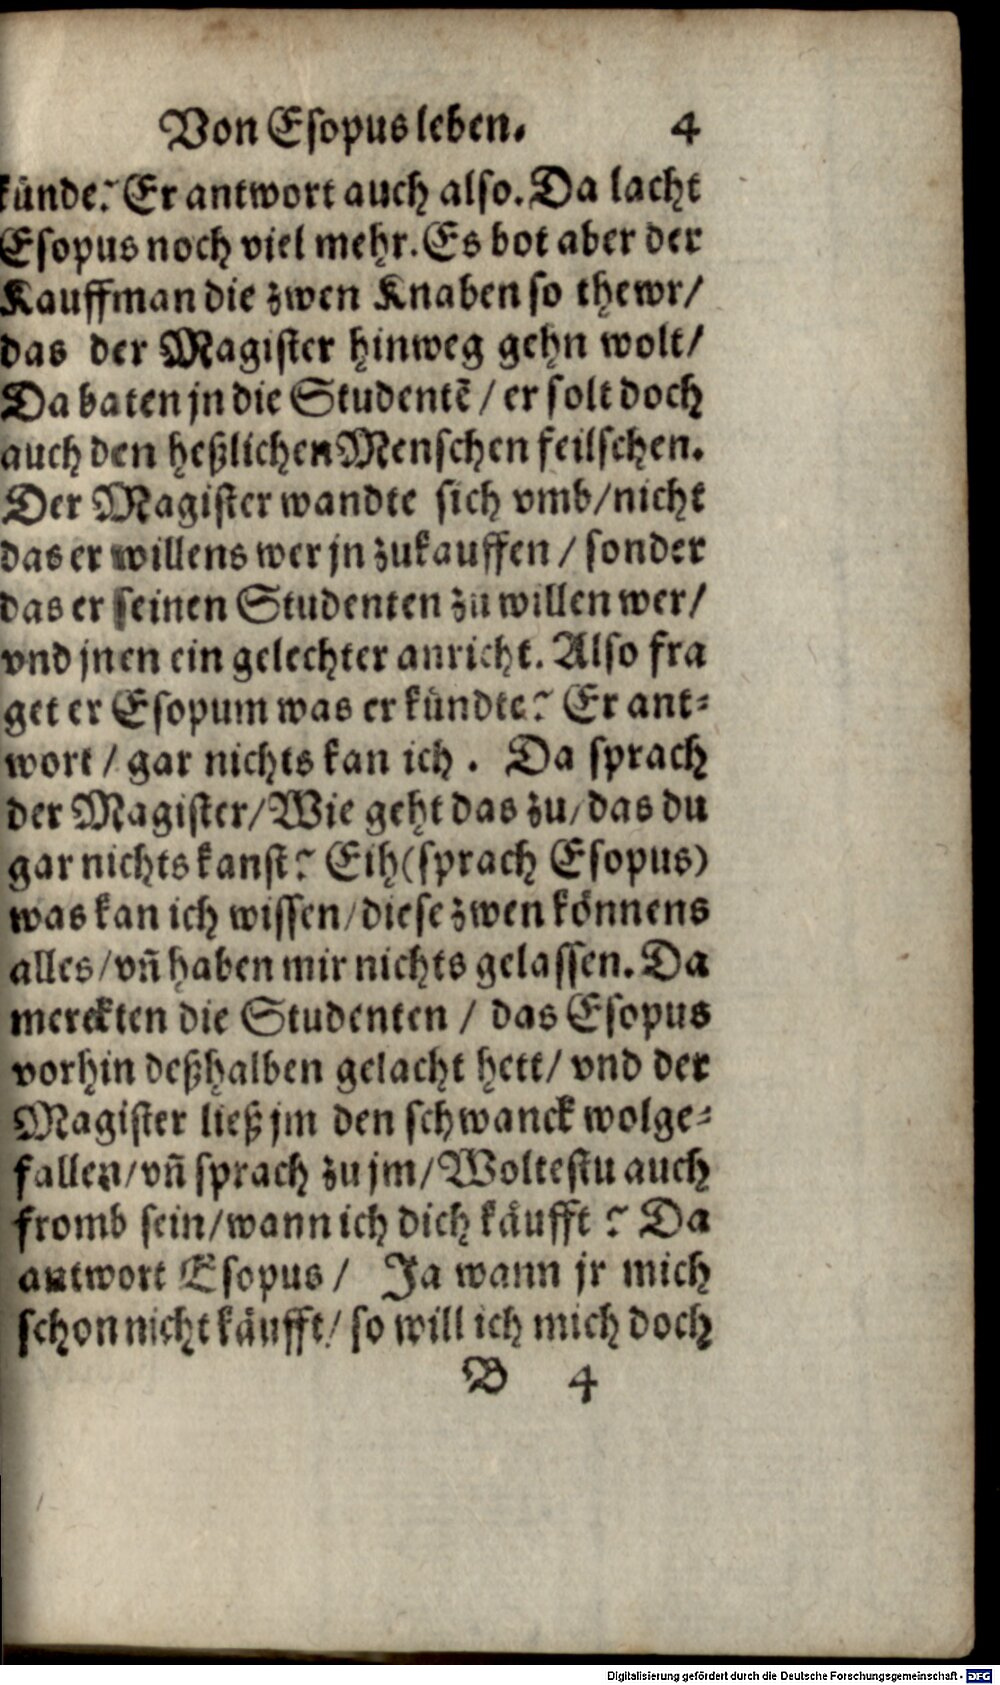 Von Esopus leben. 4
künde? Er antwort auch also. Da lacht
Esopus noch viel mehr. Es bot aber der
Kauffman die zwen Knaben so thewr/
das der Magister hinweg gehn wolt/
Da baten jn die Studentē / er solt doch
auch den heßlichen Menschen feilschen.
Der Magister wandte sich vmb/nicht
das er willens wer jn zukauffen / sonder
das er seinen Studenten zu willen wer/
vnd jnen ein gelechter anricht. Also fra
get er Esopum was er kündte? Er ant-
wort / gar nichts kan ich . Da sprach
der Magister/Wie geht das zu/das du
gar nichts kanst? Eih(sprach Esopus)
was kan ich wissen/diese zwen können​s
alles/vñ haben mir nichts gelassen. Da
merckten die Studenten / das Esopus
vorhin deßhalben gelacht hett/ vnd der
Magister ließ jm den schwanck wolge-
fallen/vñ sprach zu jm/Woltestu auch
fromb sein/wann ich dich käufft ? Da
antwort Esopus / Ja wann jr mich
schon nicht käufft/ so will ich mich doch
B 4
Digitalisierung gefördert durch die Deutsche Forschungsgemeinschaft - DFG